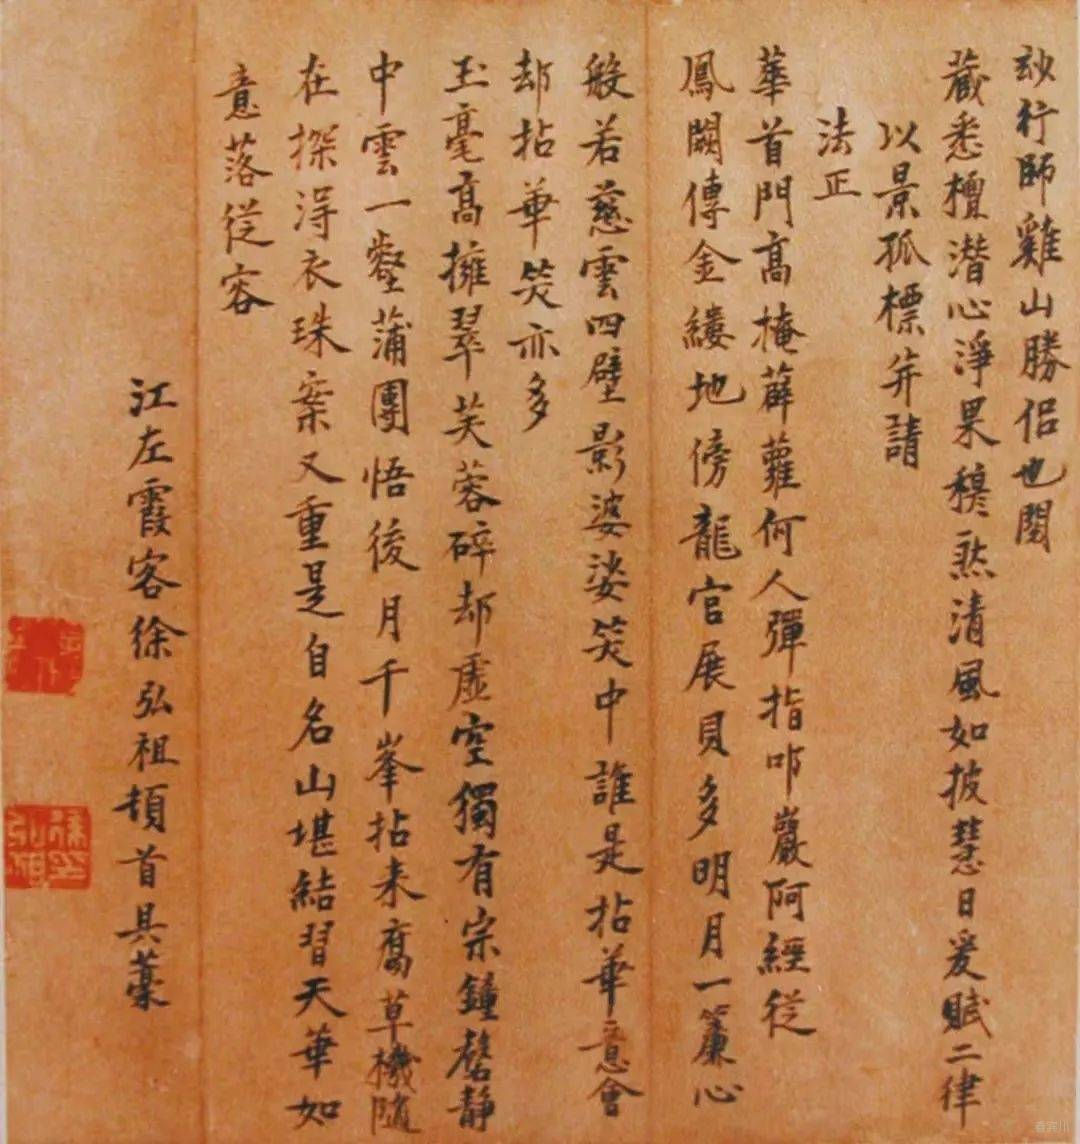 玅行師雞山勝侶也閱
藏悉檀潛心淨果穆然清風如披慧日爰賦二律
以景孤標并請
法正
華首門高掩薜蘿何人彈指叩巖阿經從
鳳闕傳金縷地傍龍宮展貝多明月一簾心
般若慈雲四壁影婆娑笑中誰是拈華意會
却拈華笑亦多
玉毫高擁翠芙蓉碎却虛空獨有宗鐘磬靜
中雲一壑蒲團悟後月千峯拈来腐草機隨
在探得衣珠案又重是自名山堪結習天華如
意落從容
江左霞客徐弘祖頓首具藁